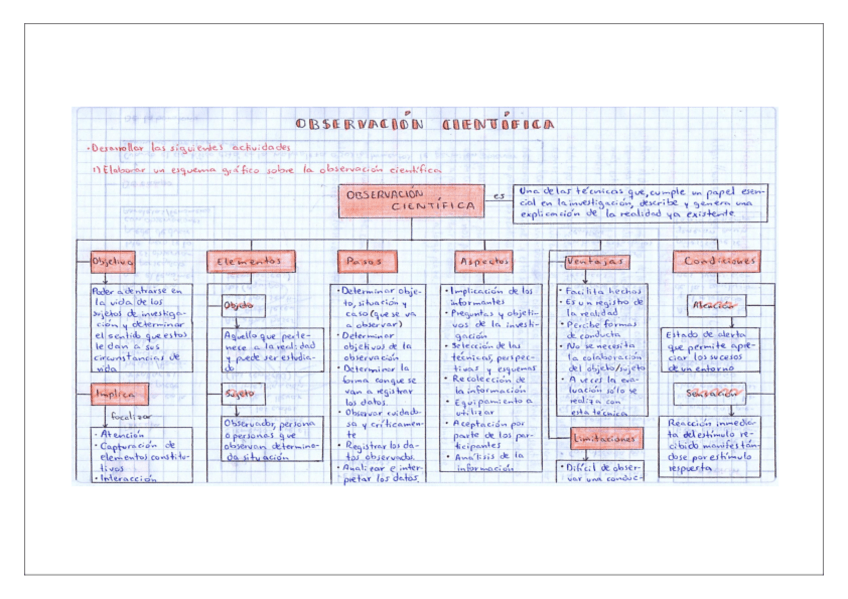 OBSERVACIÓN CIENTÍFICA
• Desarrollar las siguientes actividades
1) Elaborar un esquema gráfico sobre la observación científica
OBSERVACIÓN
CIENTÍFICA
es
Una de las técnicas que, cumple un papel esen-
cial en la investigación, describe y genera una
explicación de la realidad ya existente
Objetivo
Poder adentrarse en
la vida de los
sujetos de investiga-
ción y determinar
el sentido que estos
le dan a sus
circunstancias de
vida
Implica
focalizar
• Atención
• Capturación de
elementos constitu-
tivos
• Interacción
Elementos
Objeto
Aquello que perte-
nece a la realidad
y puede ser estudia-
do
Sujeto
Observador, persona
o personas que
observan determina-
da situación
Pasos
• Determinar obje-
to, situación y
caso (que se va
a observar)
• Determinar
objetivos de la
observación
• Determinar la
forma con que se
van a registrar
los datos.
• Observar cuidado-
sa y críticamen-
te
• Registrar los da-
tos observados.
• Analizar e inter-
pretar los datos.
Aspectos
• Implicación de los
informantes
• Preguntas y objeti-
vos de la investi-
gación
• Selección de las
técnicas, perspec-
tivas y esquemas
• Recolección de
la información
• Equipamiento a
utilizar
• Aceptación por
parte de los par-
ticipantes
• Análisis de la
información
Ventajas
• Facilita hechos
• Es un registro de
la realidad
• Percibe formas
de conducta
• No se necesita
la colaboración
del objeto/sujeto
• A veces la eva-
luación sólo se
realiza con
esta técnica
Limitaciones
• Difícil de obser-
var una conduc-
Condiciones
Atención
Estado de alerta
que permite apre-
ciar los sucesos
de un entorno
Sensación
Reacción inmedia-
ta del estímulo re-
cibido manifestán-
dose por estímulo
respuesta